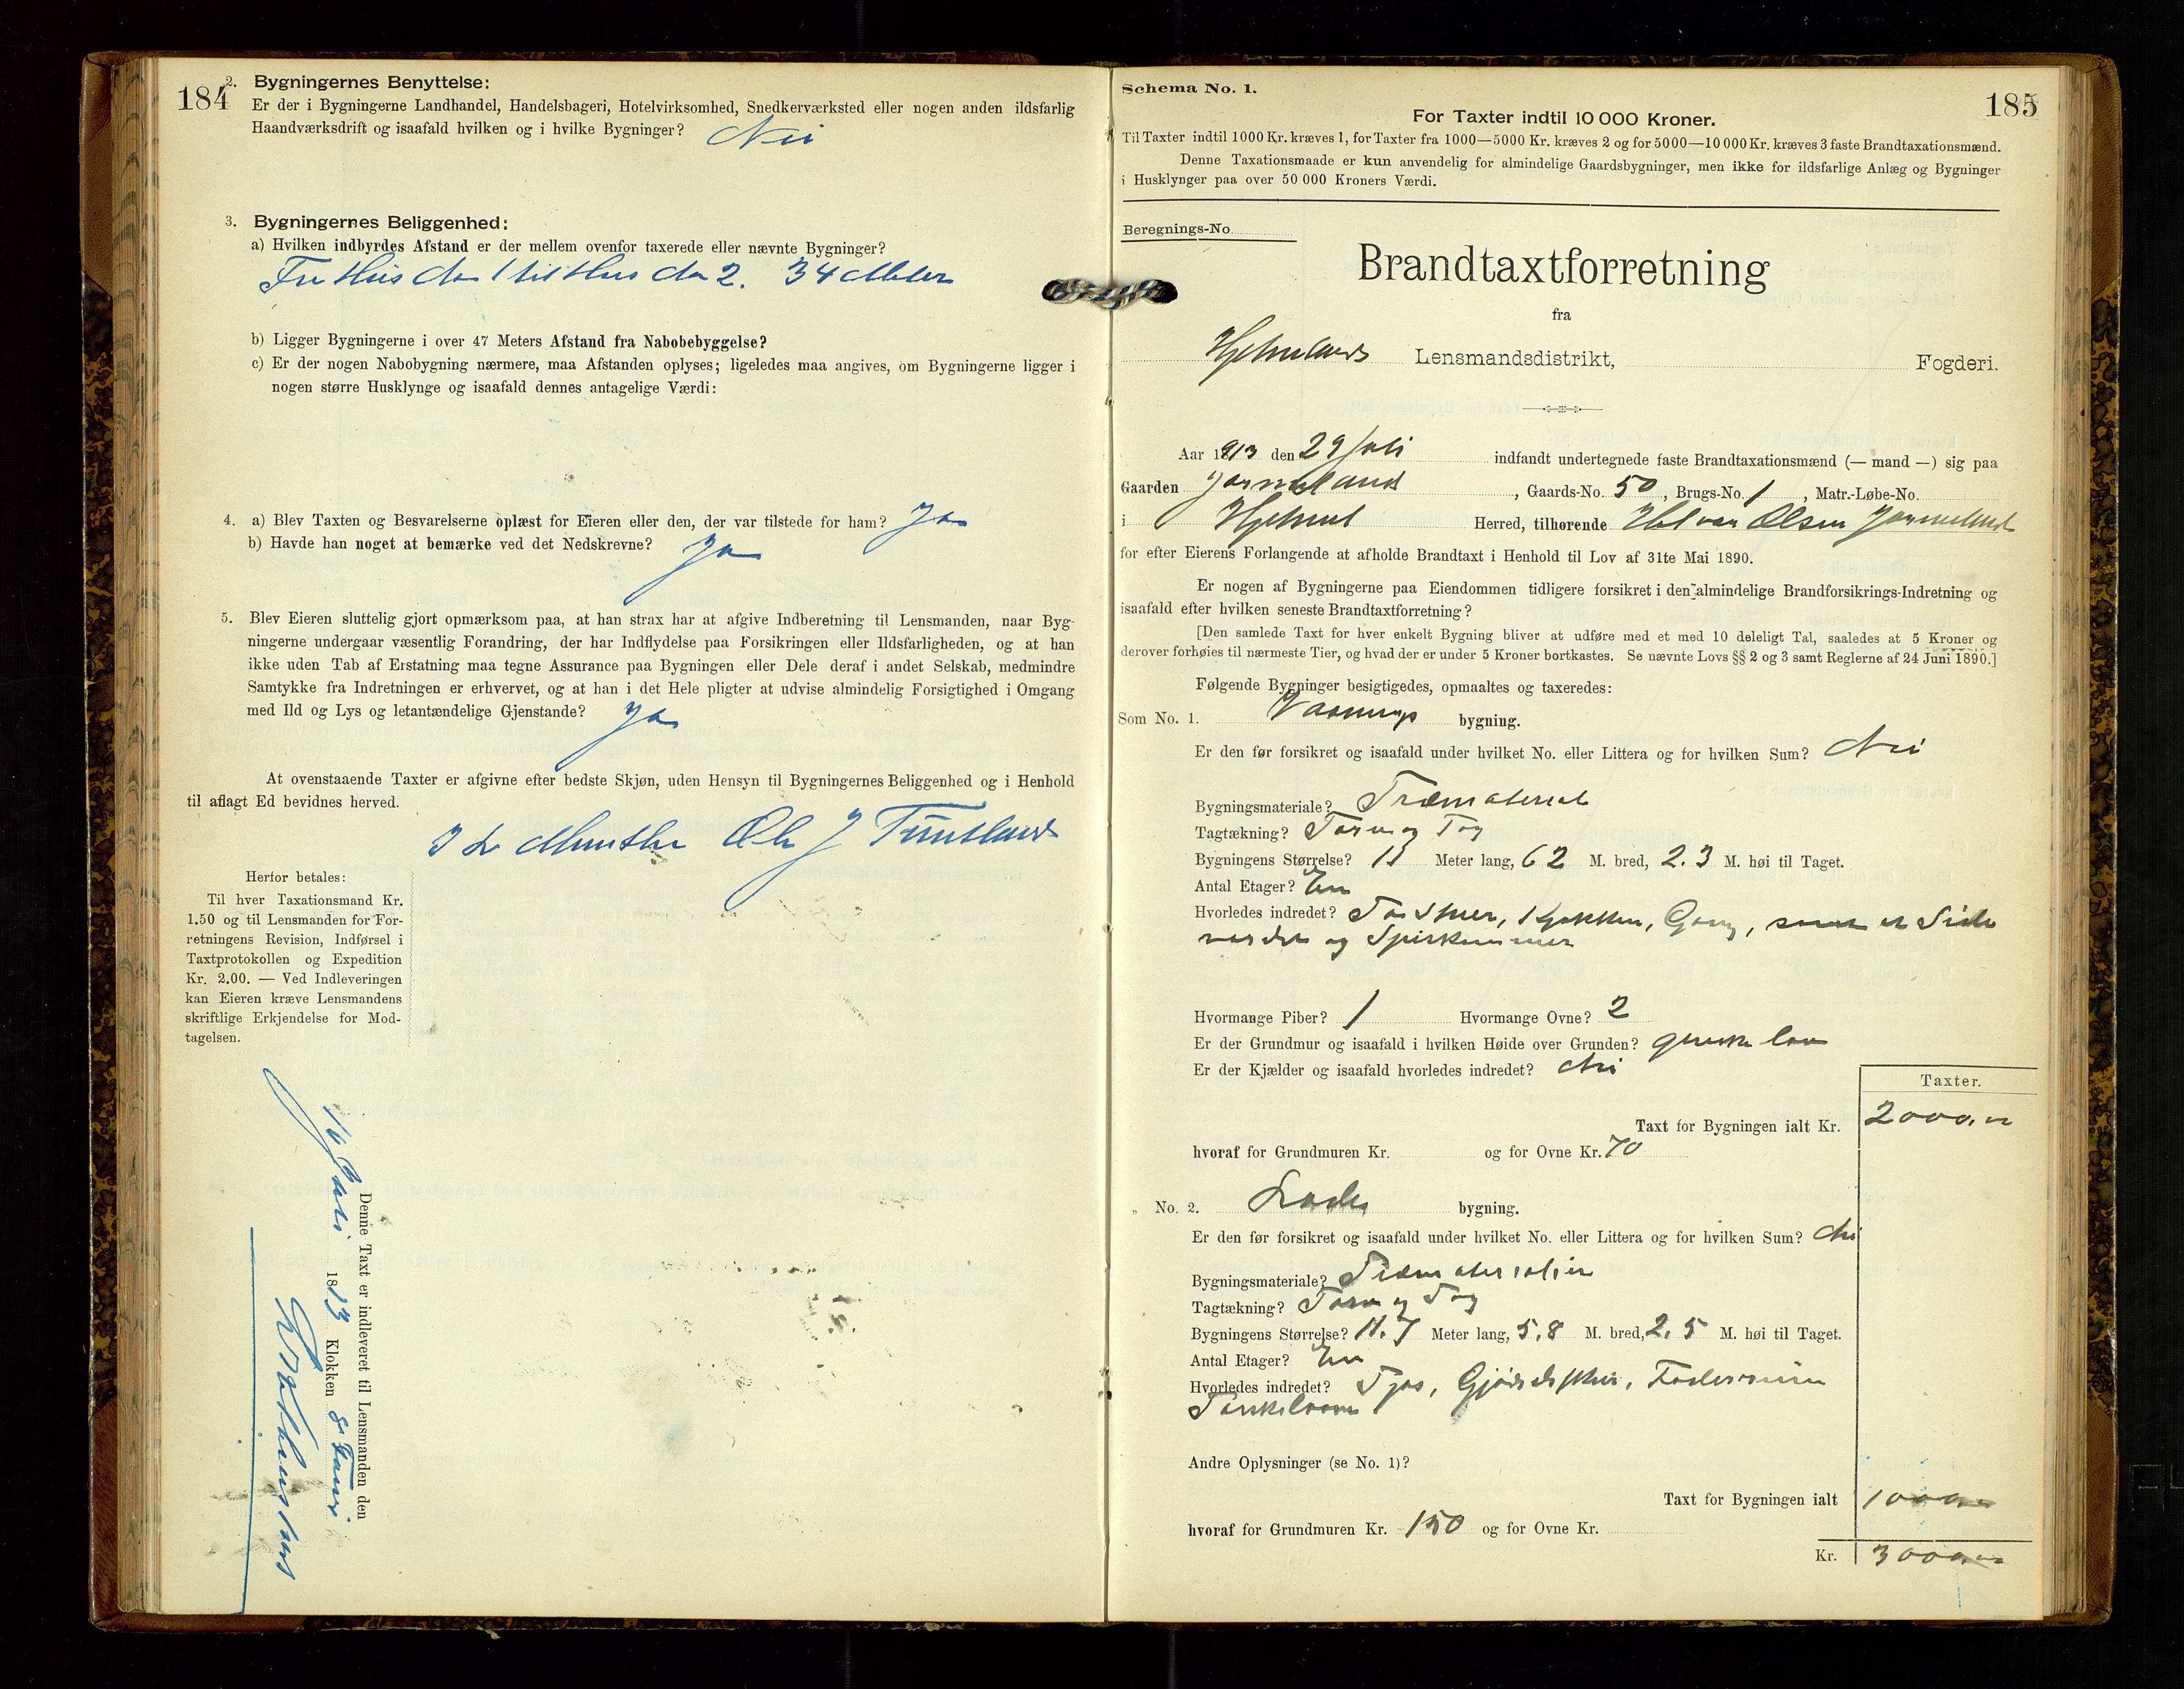 184
2. Bygningernes Benyttelse:
Er der i Bygningerne Landhandel, Handelsbageri, Hotelvirksomhed, Snedkerværksted eller nogen anden ildsfarlig
Haandværksdrift og isaafald hvilken og i hvilke Bygninger? Nei
3. Bygningernes Beliggenhed:
a) Hvilken indbyrdes Afstand er der mellem ovenfor taxerede eller nævnte Bygninger?
Fra Hus 1 til Hus 2. 34 Meter
b) Ligger Bygningerne i over 47 Meters Afstand fra Nabobebyggelse?
c) Er der nogen Nabobygning nærmere, maa Afstanden oplyses; ligeledes maa angives, om Bygningerne ligger i
nogen større Husklynge og isaafald dennes antagelige Værdi:
4. a) Blev Taxten og Besvarelserne oplæst for Eieren eller den, der var tilstede for ham? Ja
b) Havde han noget at bemærke ved det Nedskrevne? Ja
5. Blev Eieren sluttelig gjort opmærksom paa, at han strax har at afgive Indberetning til Lensmanden, naar Byg-
ningerne undergaar væsentlig Forandring, der har Indflydelse paa Forsikringen eller Ildsfarligheden, og at han
ikke uden Tab af Erstatning maa tegne Assurance paa Bygningen eller Dele deraf i andet Selskab, medmindre
Samtykke fra Indretningen er erhvervet, og at han i det Hele pligter at udvise almindelig Forsigtighed i Omgang
med Ild og Lys og letantændelige Gjenstande? Ja
At ovenstaaende Taxter er afgivne efter bedste Skjøn, uden Hensyn til Bygningernes Beliggenhed og i Henhold
til aflagt Ed bevidnes herved.
Herfor betales:
Til hver Taxationsmand Kr.
1.50 og til Lensmanden for For-
retningens Revision, Indførsel i
Taxtprotokollen og Expedition
Kr. 2.00. — Ved Indleveringen
kan Eieren kræve Lensmandens
skriftlige Erkjendelse for Mod-
tagelsen.
Denne Taxt er indleveret til Lensmanden den
1813 Klokken 8
185
Schema No. 1.
For Taxter indtil 10 000 Kroner.
Til Taxter indtil 1000 Kr. kræves 1, for Taxter fra 1000—5000 Kr. kræves 2 og for 5000—10 000 Kr. kræves 3 faste Brandtaxationsmænd.
Denne Taxationsmaade er kun anvendelig for almindelige Gaardsbygninger, men ikke for ildsfarlige Anlæg og Bygninger
i Husklynger paa over 50 000 Kroners Værdi.
Beregnings-No.
Brandtaxtforretning
fra
Hjelmelands Lensmandsdistrikt, Fogderi.
Aar 1913 den 29 Juli indfandt undertegnede faste Brandtaxationsmænd (— mand —) sig paa
Gaarden , Gaards-No. 50, Brugs-No. 1, Matr.-Løbe-No.
i Hjelmel Herred, tilhørende Olsen
for efter Eierens Forlangende at afholde Brandtaxt i Henhold til Lov af 31te Mai 1890.
Er nogen af Bygningerne paa Eiendommen tidligere forsikret i den almindelige Brandforsikrings-Indretning og
isaafald efter hvilken seneste Brandtaxtforretning?
[Den samlede Taxt for hver enkelt Bygning bliver at udføre med et med 10 deleligt Tal, saaledes at 5 Kroner og
derover forhøies til nærmeste Tier, og hvad der er under 5 Kroner bortkastes. Se nævnte Lovs §§ 2 og 3 samt Reglerne af 24 Juni 1890.]
Følgende Bygninger besigtigedes, opmaaltes og taxeredes:
Som No. 1. Vaanings bygning.
Er den før forsikret og isaafald under hvilket No. eller Littera og for hvilken Sum? Nei
Bygningsmateriale? Træmaterial
Tagtækning? Torv og
Bygningens Størrelse? Meter lang, 62 M. bred, 2.3 M. høi til Taget.
Antal Etager? En
Hvorledes indredet? To Stuer, Kjøkken, Gang, samt et Side
og Spiskammer
Hvormange Piber? 1 Hvormange Ovne? 2
Er der Grundmur og isaafald i hvilken Høide over Grunden? ganske lav
Er der Kjælder og isaafald hvorledes indredet? Nei
Taxter.
Taxt for Bygningen ialt Kr. 2000.
hvoraf for Grundmuren Kr. og for Ovne Kr. 70
„ No. 2. Lade bygning.
Er den før forsikret og isaafald under hvilket No. eller Littera og for hvilken Sum? Nei
Bygningsmateriale? Træmaterialier
Tagtækning? Torv og
Bygningens Størrelse? 11.7 Meter lang, 5,8 M. bred, 2,5 M. høi til Taget.
Antal Etager? En
Hvorledes indredet?
Andre Oplysninger (se No. 1)?
Taxt for Bygningen ialt 1000
hvoraf for Grundmuren Kr. 150 og for Ovne Kr.
Kr. 3000